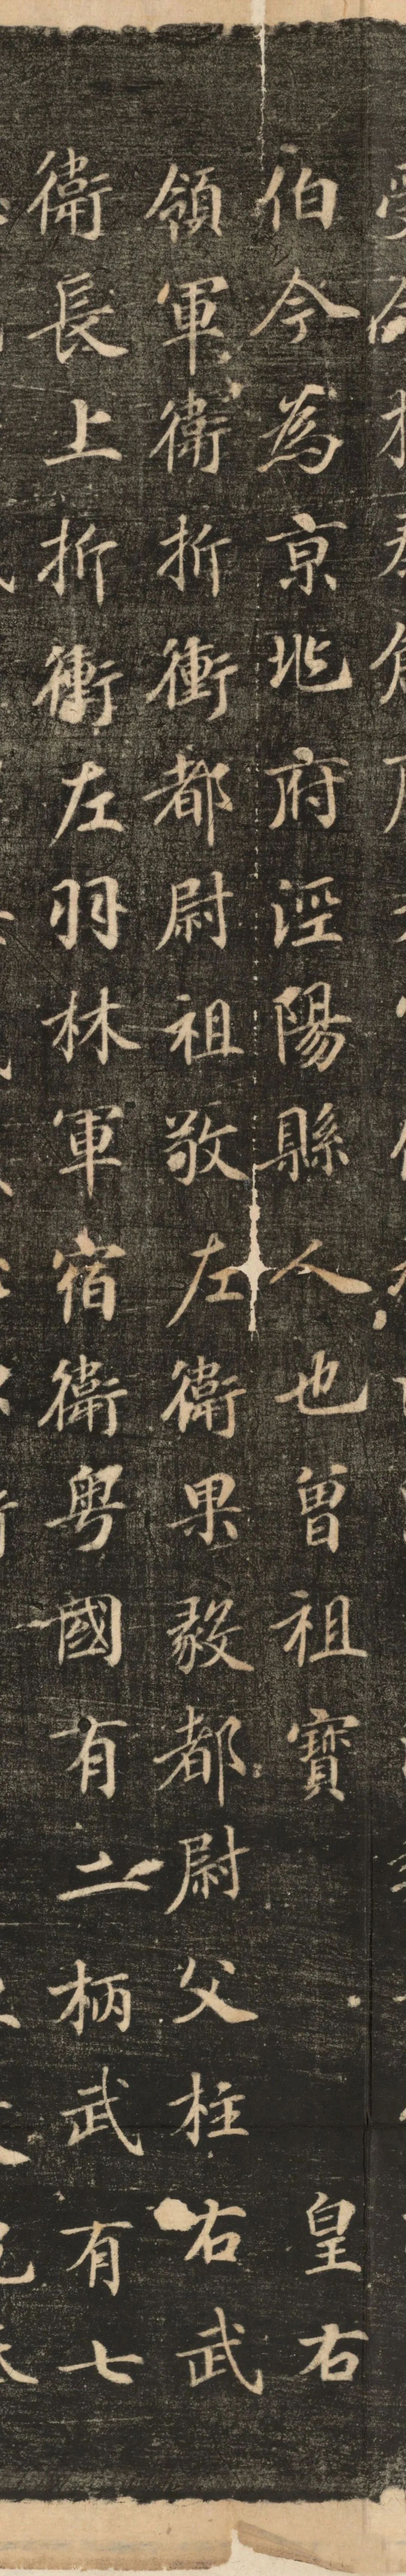 伯今為京兆府涇陽縣人也曾祖寶 皇右
領軍衛折衝都尉祖敬左衛果毅都尉父柱右武
衛長上折衝左羽林軍宿衛粤國有二柄武有七